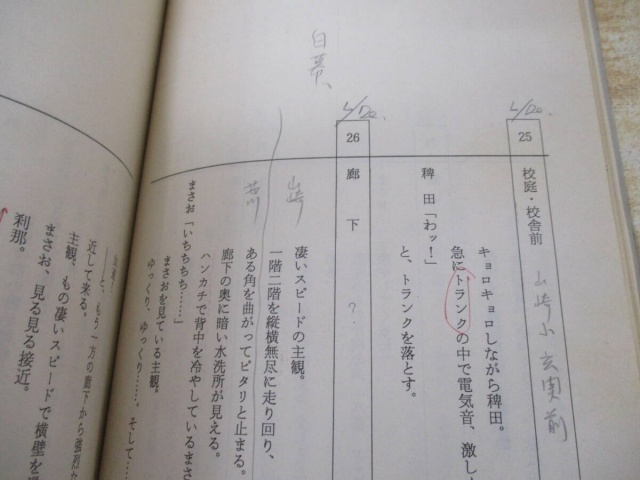 白黄、
L/Do.
25
校庭・校舎前
山崎小玄関前
キョロキョロしながら稗田。
急にトランクの中で電気音、激し
稗田「わッ!」
と、トランクを落とす。
L/Do.
26
廊下
?
山崎
荒川
凄いスピードの主観。
一階二階を縦横無尽に走り回り、
ある角を曲がってピタリと止まる。
廊下の奥に暗い水洗所が見える。
ハンカチで背中を冷やしているまさ
まさお「いちちちち……」
まさおを見ている主観。
ゆっくり、ゆっくり……、そして……
――と、もう一方の廊下から強烈な
近して来る。
主観、もの凄いスピードで横壁を
まさお、見る見る接近。
刹那。